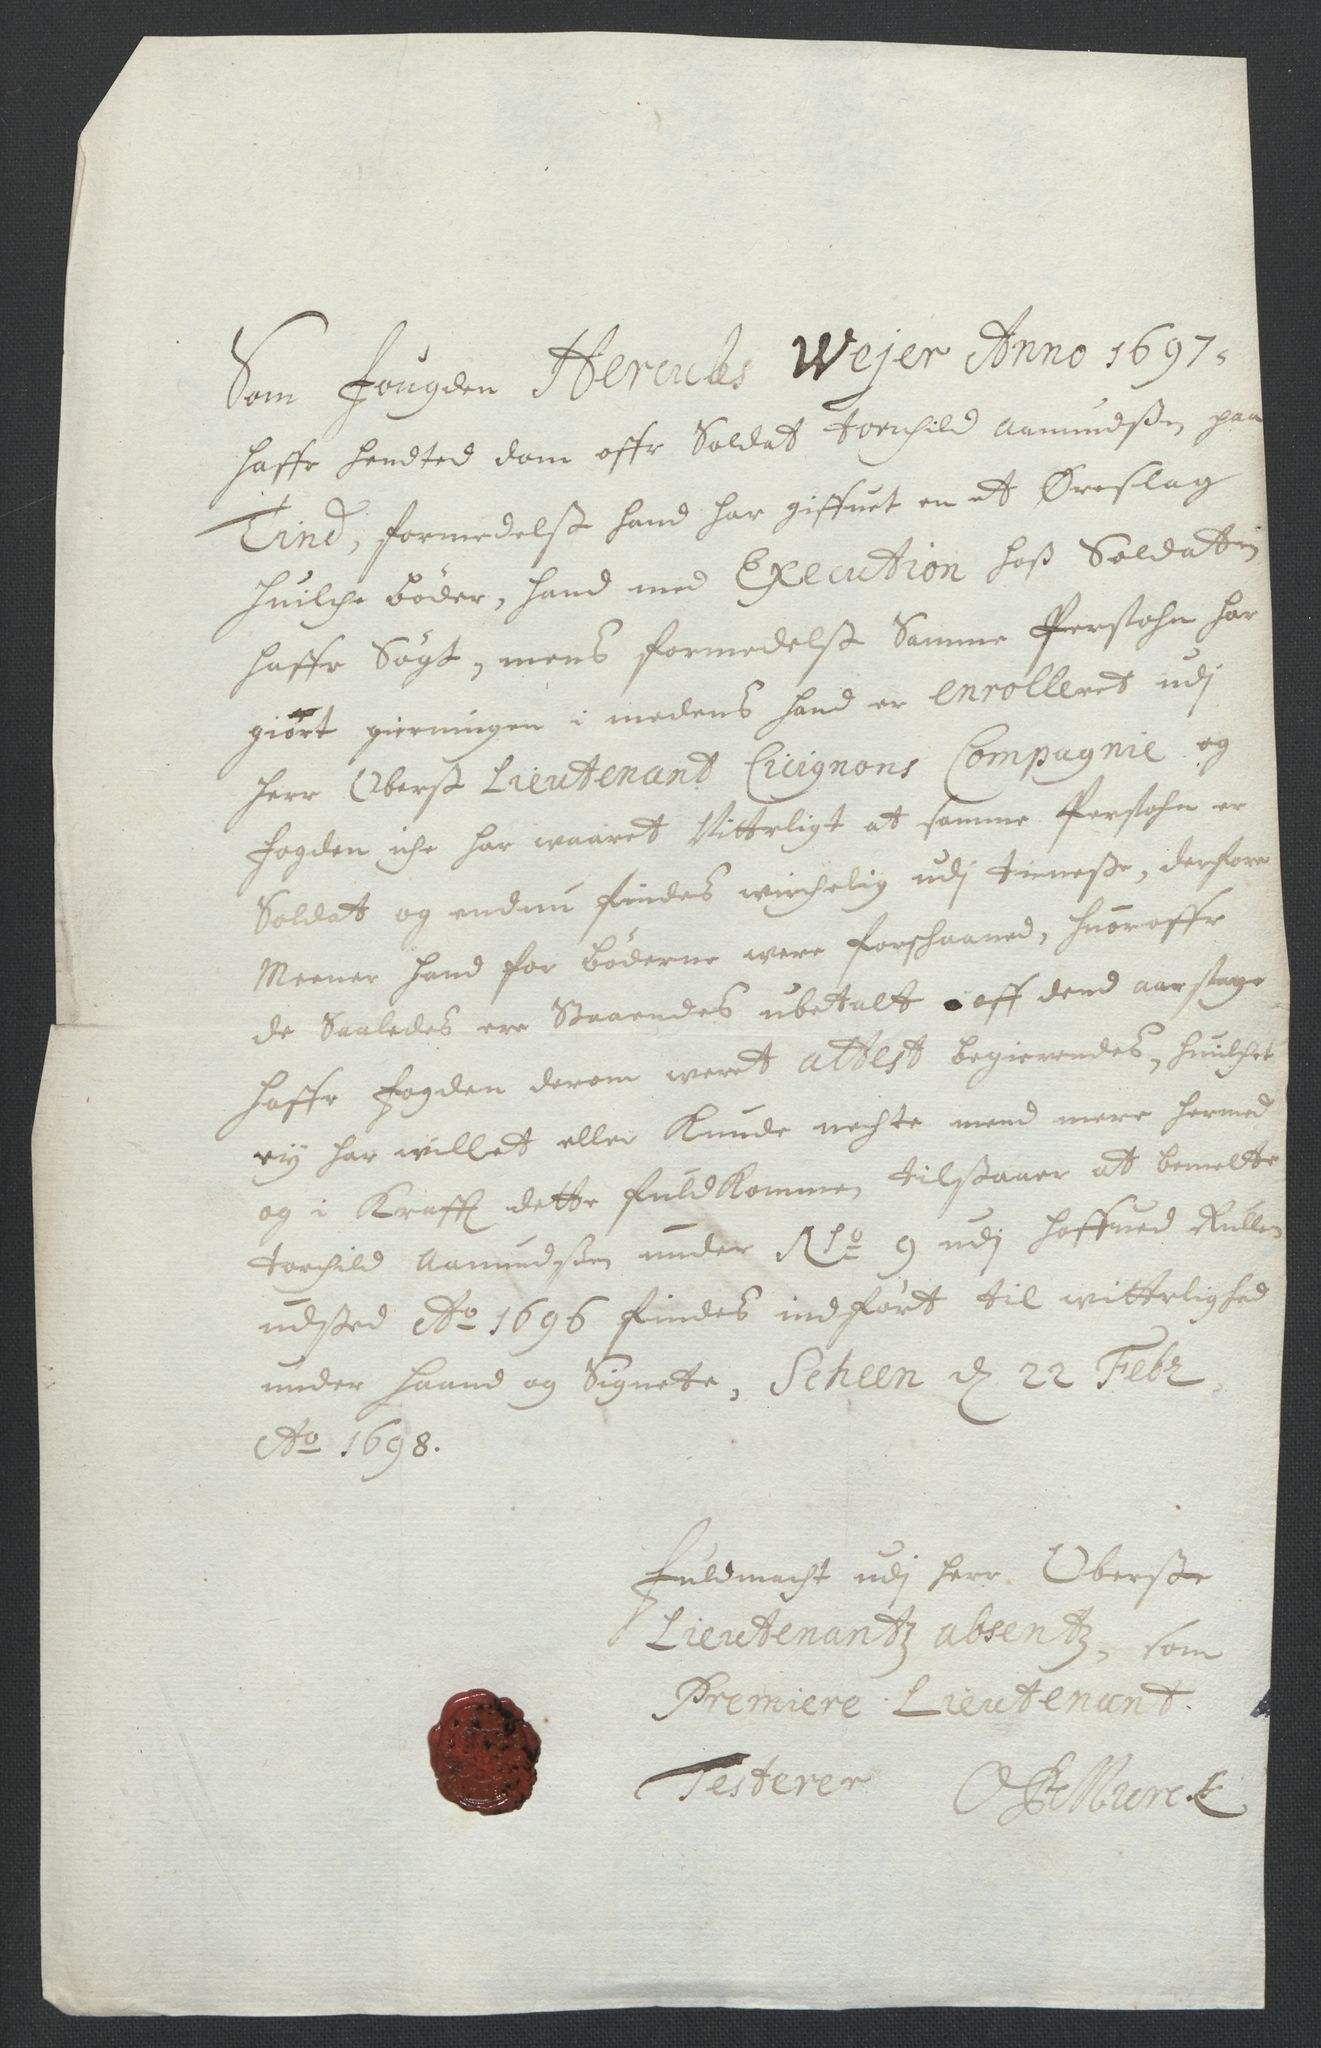 Som fougden Hercules Wejer Anno 1697
haffr hendted dom offr Soldat torchild Aamundßen paa
Tind, formedelst hand har giffuet en et Øreslag
huilche bøder, hand med Execution hoß Soldaten
haffr Søgt, mens formedelst Samme Perßohn har
giort gierningen i medens hand er enrolleret udj
herr Oberst Lieutenant Cicignons Compagnie og
fogden iche har waaret Vitterligt at samme Perßohn er
Soldat og endnu findes wirchelig udj tieneste, derfore
Meener hand for bøderne were forschaaned, huoroffr
de Saaledes ere Staaendes ubetalt off dend aarsage
haffr fogden derom weret attest begierendes, huilchet
ey har willet eller Kunde nechte mend mere hermed
og i Krafft dette fuldkommen tilstaaer at bemelte
torchild Aamundßen under No 9 udj hoffued Rullen
udsted Ao 1696 findes indført til witterlighed
under haand og Signete, Scheen d 22 Febr
Ao 1698.
fuldmacht udj herr Oberste
Lieutenantz absentz, som
Premiere Lieutenant.
Testerer